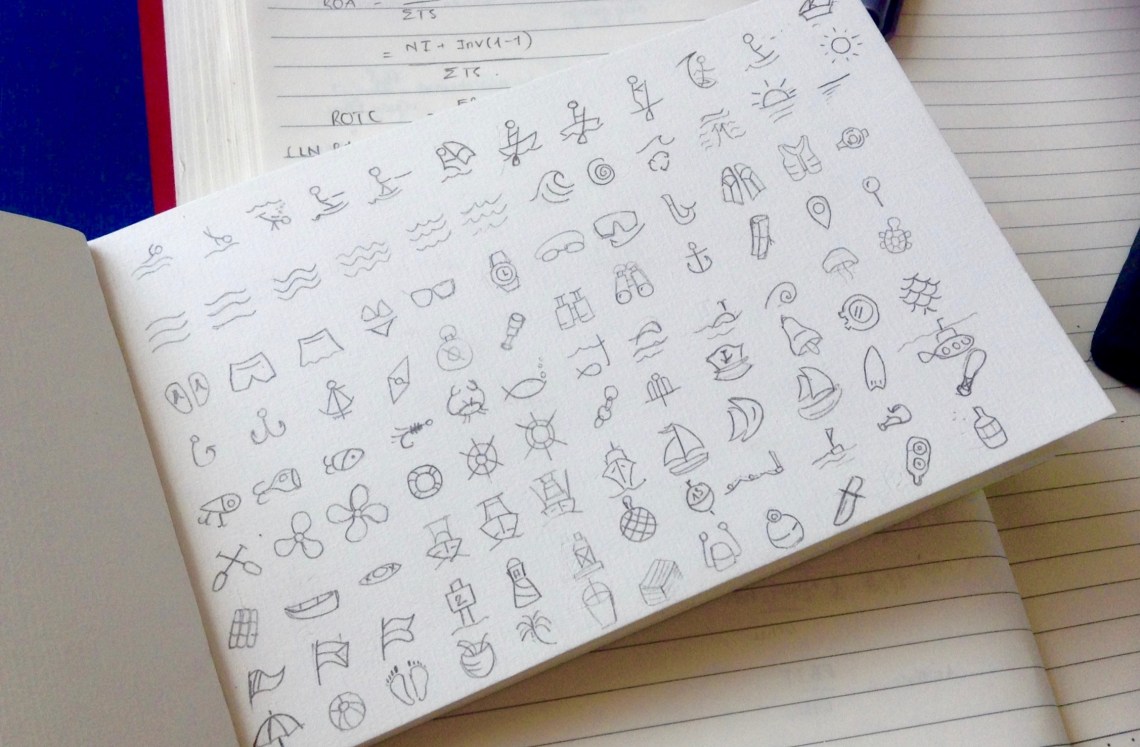 ROA =
ΣTS
= NI + Inv(1-1)
ΣTS
ROTC =
2
15